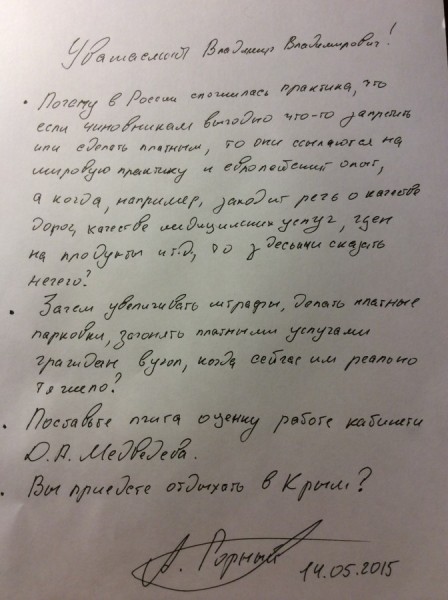 Уважаемый Владимир Владимирович!
• Почему в России сложилась практика, что
если чиновникам выгодно что-то запретить
или сделать платным, то они ссылаются на
мировую практику и европейский опыт,
а когда, например, заходит речь о качестве
дорог, качестве медицинских услуг, цен
на продукты и т.д, то здесь им сказать
нечего?
• Зачем увеличивать штрафы, делать платные
парковки, загонять платными услугами
граждан в угол, когда сейчас им реально
тяжело?
• Поставьте оценку работе кабинета
Д.А. Медведева.
• Вы приедете отдыхать в Крым?
А. Горный 14.05.2015